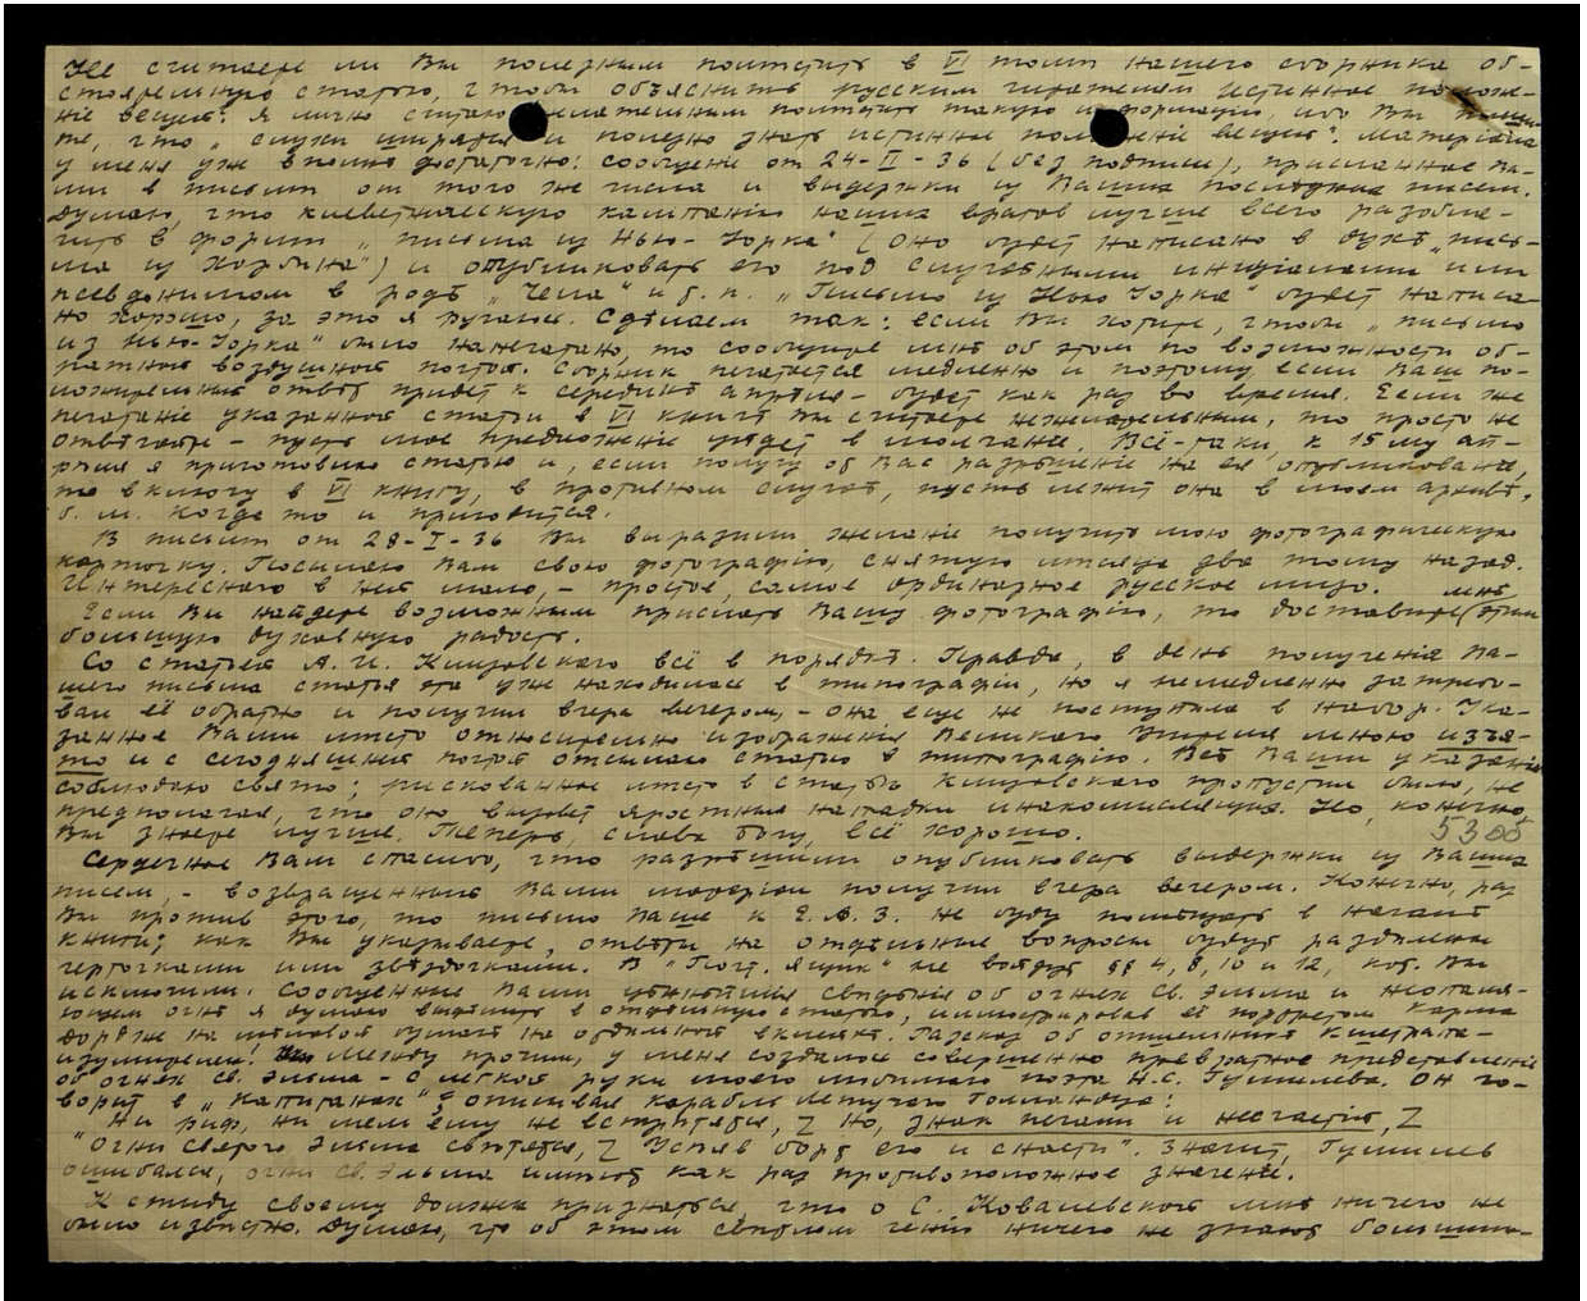 Не считаете ли Вы полезным помѣстить в VI томѣ нашего сборника об-
стоятельную статью, чтобы объяснить русским читателям истинное полож-
ніе вещей? Я лично считаю желательным помѣстить такую информацію, ибо Вы пиши-
те, что „слухи ширятся и полезно знать истинное положеніе вещей". Матеріала
у меня уже вполнѣ достаточно: сообщеніе от 24-II-36 (без подписи), присланное Ва-
ми в письмѣ от того же числа и выдержки из Ваших послѣдних писем.
Думаю, что клеветническую кампанію наших врагов лучше всего разобла-
чить в формѣ „письма из Нью-Іорка" (оно будет написано в духѣ „пись-
ма из Харбина") и опубликовать его под случайными иниціалами или
псевдонимом в родѣ „Чела" и т. п. „Письмо из Нью Іорка" будет написа-
но хорошо, за это я ручаюсь. Сдѣлаем так: если Вы хотите, чтобы „письмо
из Нью-Іорка" было напечатано, то сообщите мнѣ об этом по возможности об-
ратной воздушной почтой. Сборник печатается медленно и поэтому если Ваш по-
ложительный отвѣт придет к серединѣ апрѣля - будет как раз во время. Если же
печатаніе указанной статьи в VI книгѣ Вы считаете нежелательным, то просто не
отвѣчайте - пусть мое предложеніе уйдет в молчаніе. Всё-таки, к 15 му ап-
рѣля я приготовлю статью и, если получу от Вас разрѣшеніе на ея опубликованіе,
то включу в VI книгу, в противном случаѣ, пусть лежит она в моем архивѣ,
б. м. когда то и пригодится.
В письмѣ от 28-I-36 Вы выразили желаніе получить мою фотографическую
карточку. Посылаю Вам свою фотографію, снятую мѣсяца два тому назад.
Интересного в ней мало, - простое, самое ординарное русское лицо.
Если Вы найдете возможным прислать Вашу фотографію, то доставите мнѣ этим
большую духовную радость.
Со статьей А. И. Клизовского всё в порядкѣ. Правда, в день полученія Ва-
шего письма статья эта уже находилась в типографіи, но я немедленно затребо-
вал её обратно и получил вчера вечером, - она еще не поступила в набор. Ука-
занное Вами мѣсто относительно изображенія Великаго Учителя мною изъя-
то и с сегодняшней почтой отсылаю статью в типографію. Всѣ Ваши указанія
соблюдаю свято; рискованное мѣсто в статьѣ Клизовского пропустил было, не
предполагая, что оно вызовет яростные нападки инакомыслящих. Но, конечно,
Вы знаете лучше. Теперь, слава Богу, всё хорошо.
53об
Сердечное Вам спасибо, что разрѣшили опубликовать выдержки из Ваших
писем, - возвращенный Вами матеріал получил вчера вечером. Конечно, раз
Вы против этого, то письмо Ваше к Э. А. З. не буду помѣщать в началѣ
книги; как Вы указываете, отвѣты на отдѣльные вопросы будут раздѣлены
черточками или звѣздочками. В „Почт. ящик" не войдут §§ 4, 8, 10 и 12, кот. Вы
исключили. Сообщенные Вами свѣдѣнія об огнях св. Эльма и неопаля-
ющем огнѣ я думаю выдѣлить в отдѣльную статью, иллюстрировав её портретом Карма
Дордже на мѣловой бумагѣ на отдѣльной вклейкѣ. Разсказ об отшельникѣ Кшетрапа -
изумителен! Между прочим, у меня создалось совершенно превратное представленіе
об огнях св. Эльма - с легкой руки моего любимаго поэта Н. С. Гумилева. Он го-
ворит в „Капитанах", описывая корабль Летучаго Голландца:
„Ни риф, ни мель ему не встрѣтятся, Z Но, знак печали и несчастій, Z
„Огни святого Эльма свѣтятся, Z Усѣяв борт его и снасти". Значит, Гумилев
ошибался, огни св. Эльма имѣют как раз противоположное значеніе.
К стыду своему должен признаться, что о С. Ковалевской мнѣ ничего не
было извѣстно. Думаю, что об этом свѣтлом геніи ничего не знают большин-